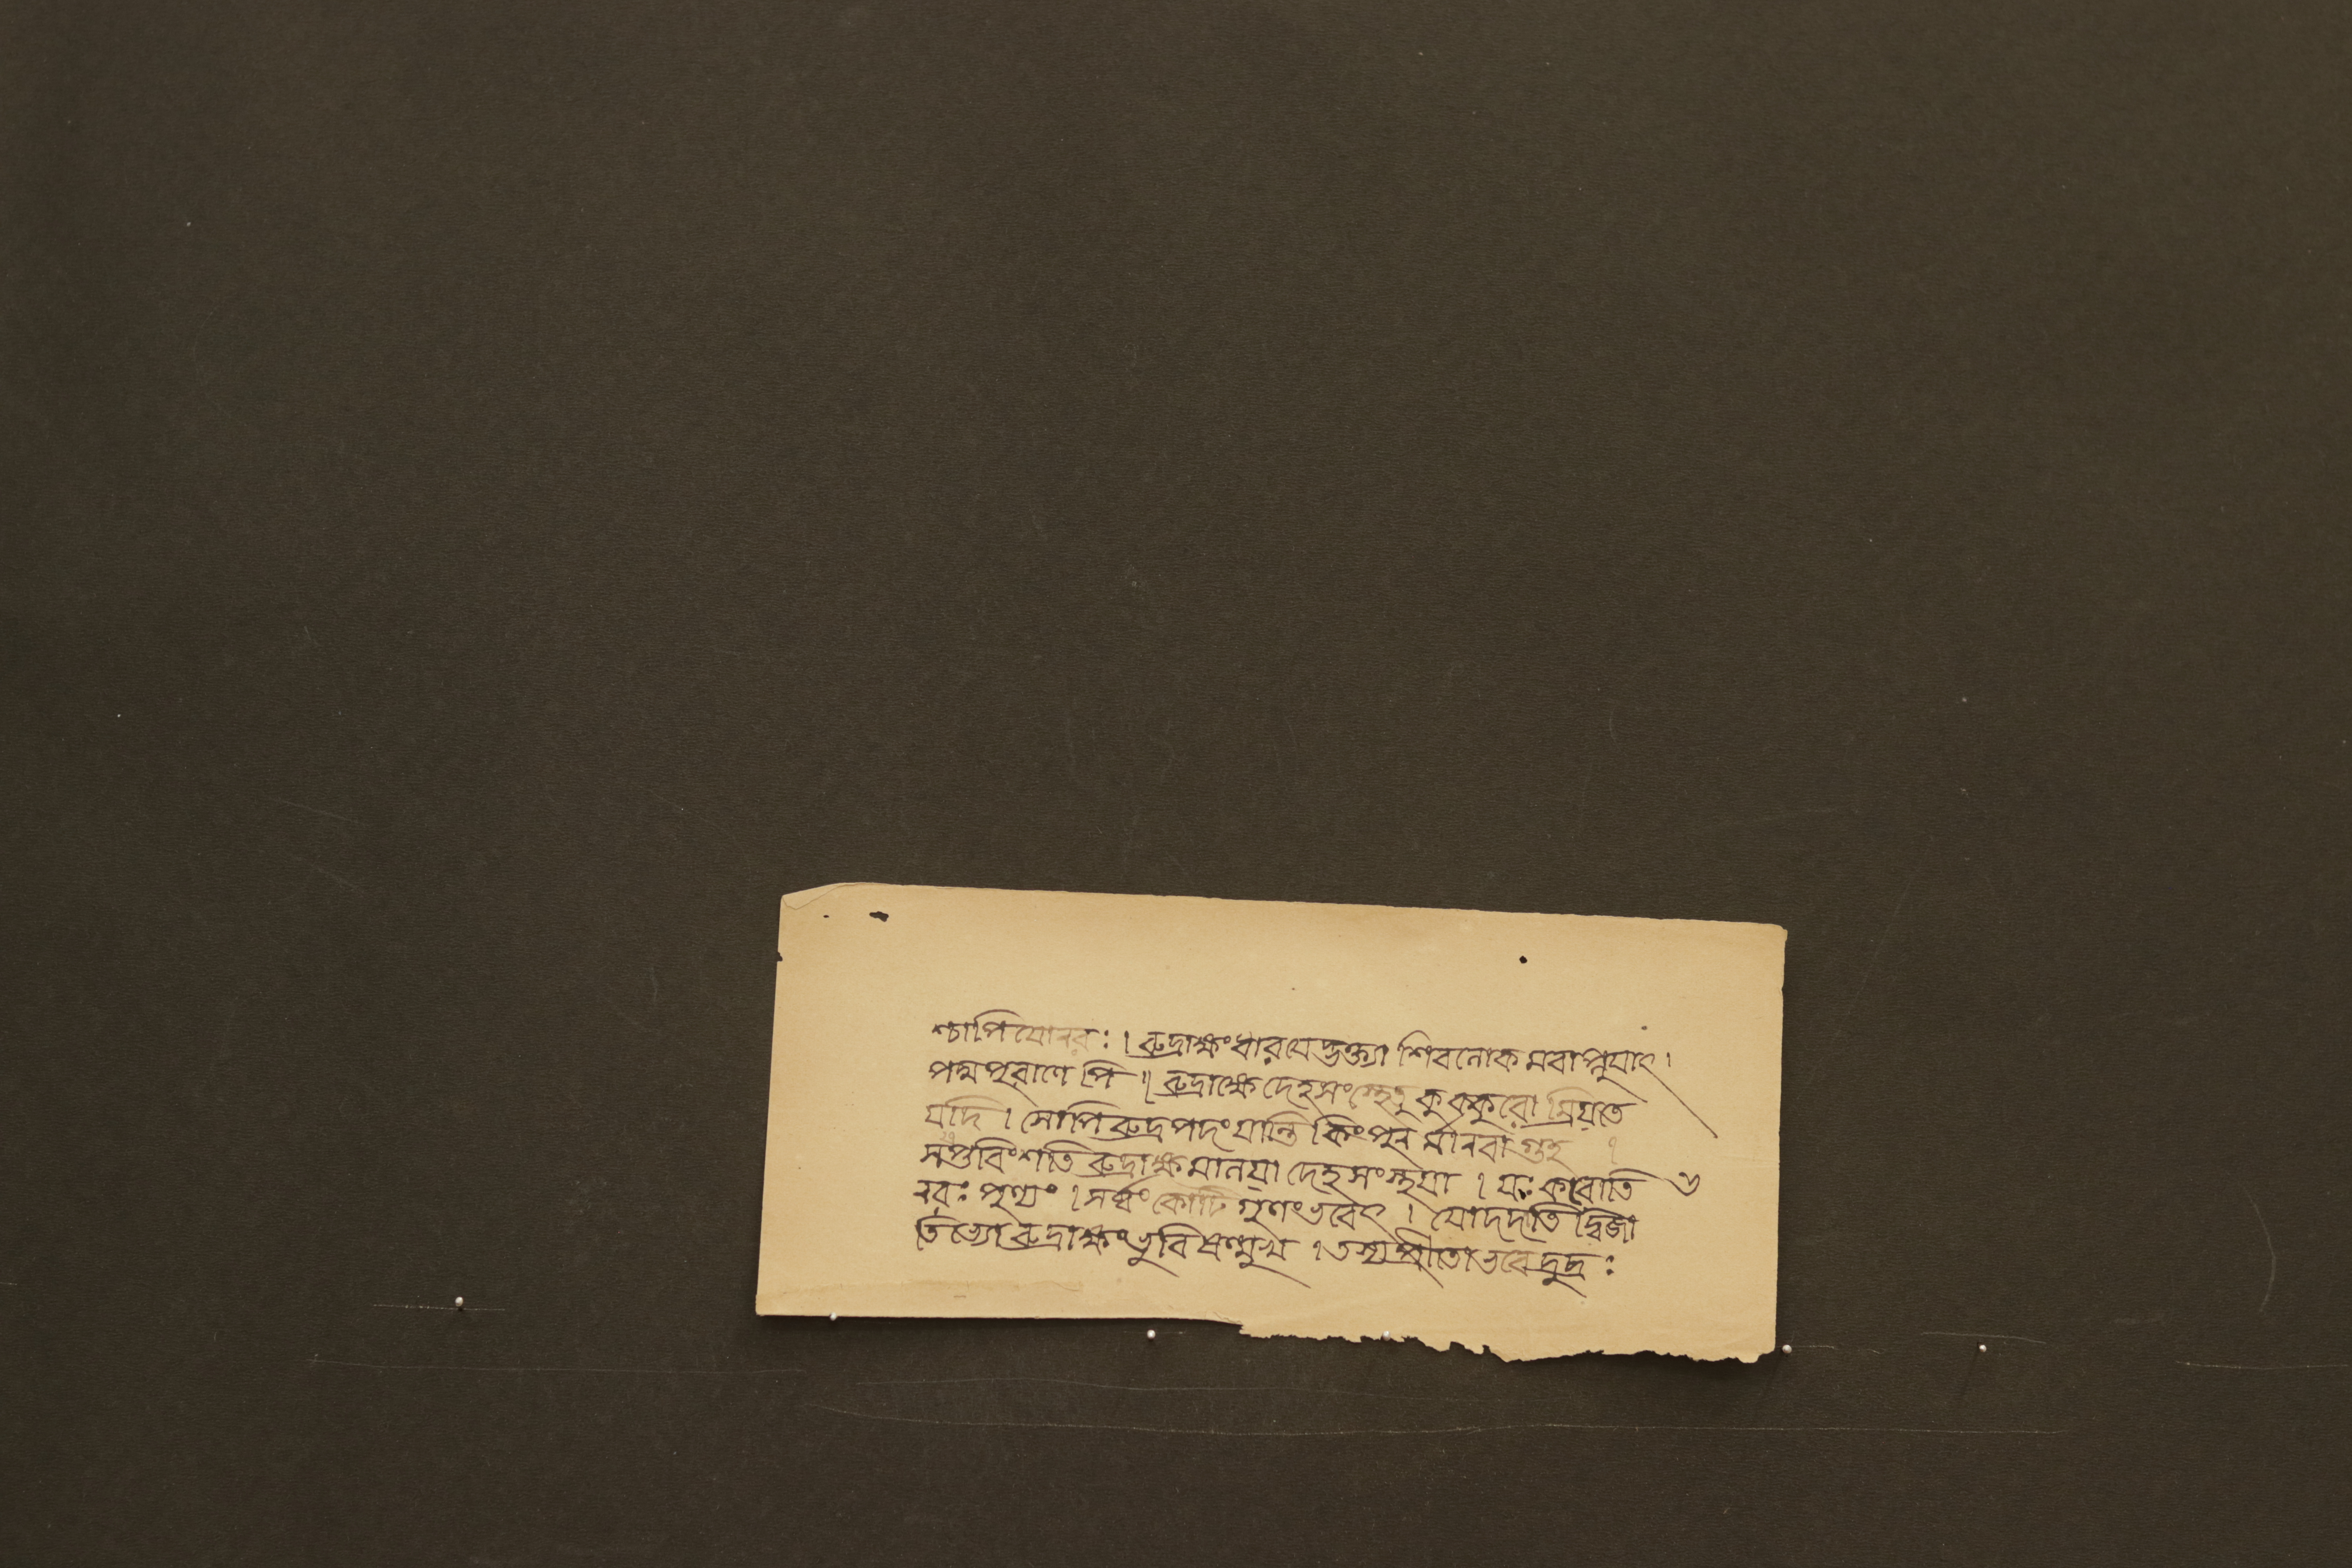 শ্চাপি যোনরঃ । রুদ্রাক্ষং ধারযেদ্ভক্ত্যা শিবলোকমবাপ্নুযাৎ ।
পদ্মপুরাণেপি ॥ রুদ্রাক্ষে দেহসংস্থেতু কুক্কুরো ম্রিয়তে
যদি । সোপি রুদ্রপদং যান্তি কিংপুনর্মানবা গুহ ।
সপ্তবিংশতি রুদ্রাক্ষমালয়া দেহসংস্থয়া । যঃ করোতি ৩
নরঃ পুণ্যং । সর্ব্বং কোটিগুণংভবেৎ । যোদদাতি দ্বিজা
তিভ্যো রুদ্রাক্ষংভুবি ষণ্মুখ । তস্যপ্রীতোভবেদ্রুদ্রঃ